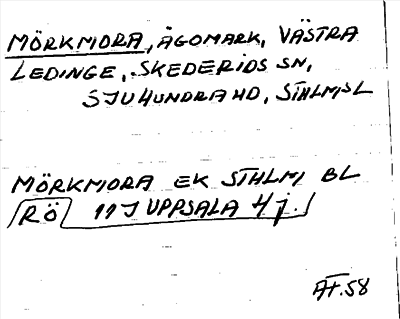 MÖRKMORA, ÄGOMARK, VÄSTRA
LEDINGE, SKEDERIDS SN,
SJUHUNDRA HD, STHLMS L
MÖRKMORA EK STHLM BL
RÖ 11J UPPSALA 4j.
AT.58